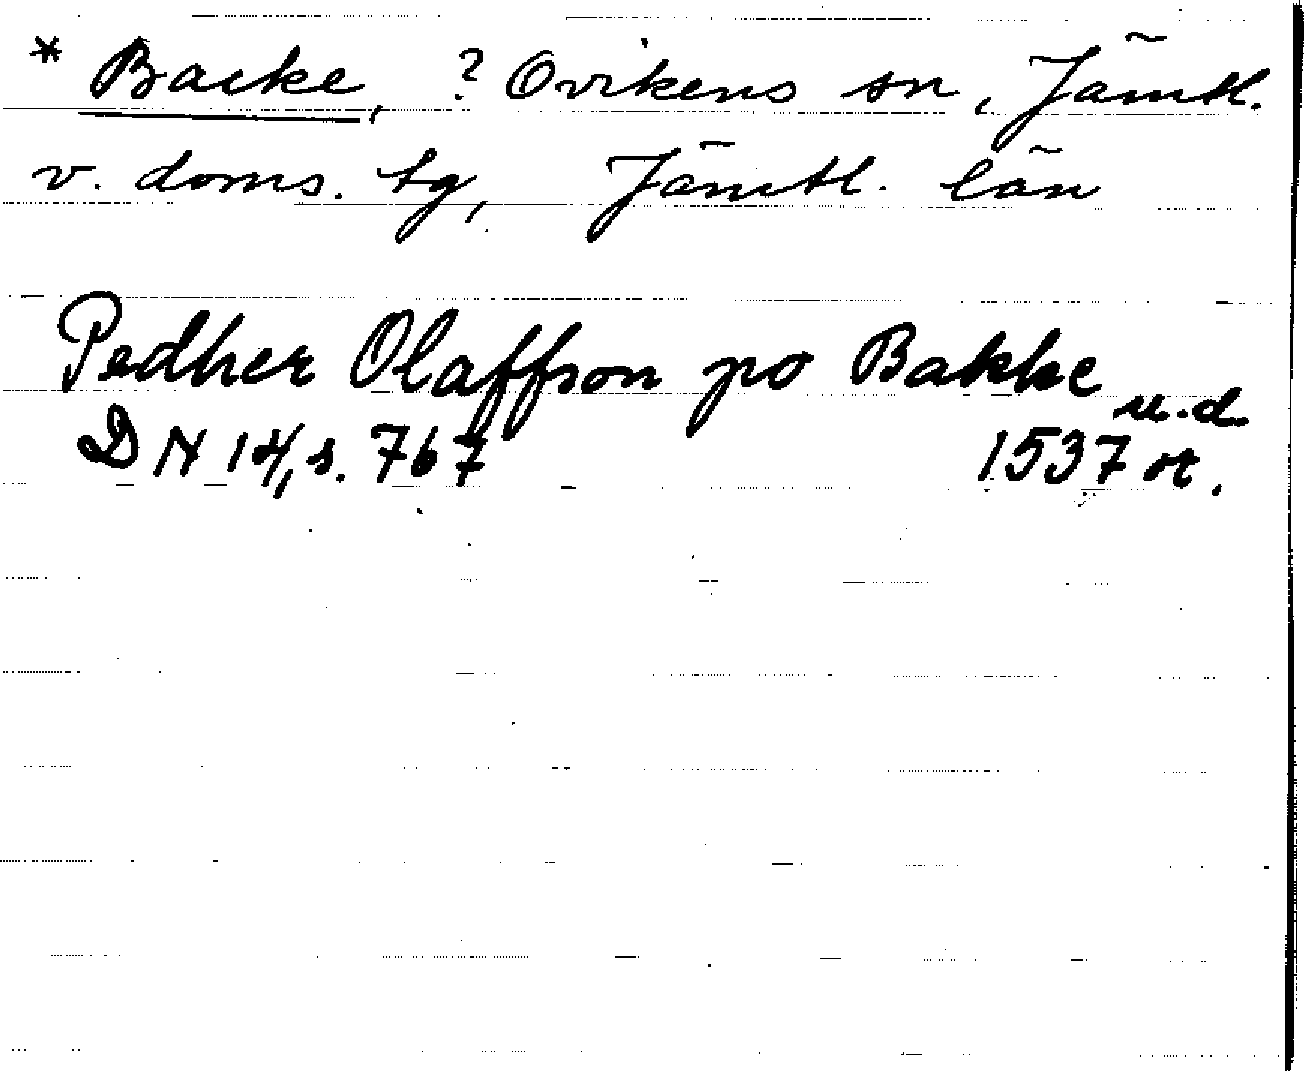 * Backe, ? Ovikens sn, Jämtl.
v. doms. tg, Jämtl. län
Pedher Olaffson po Bakke
u.d
DN 14, s. 767 1537 or.